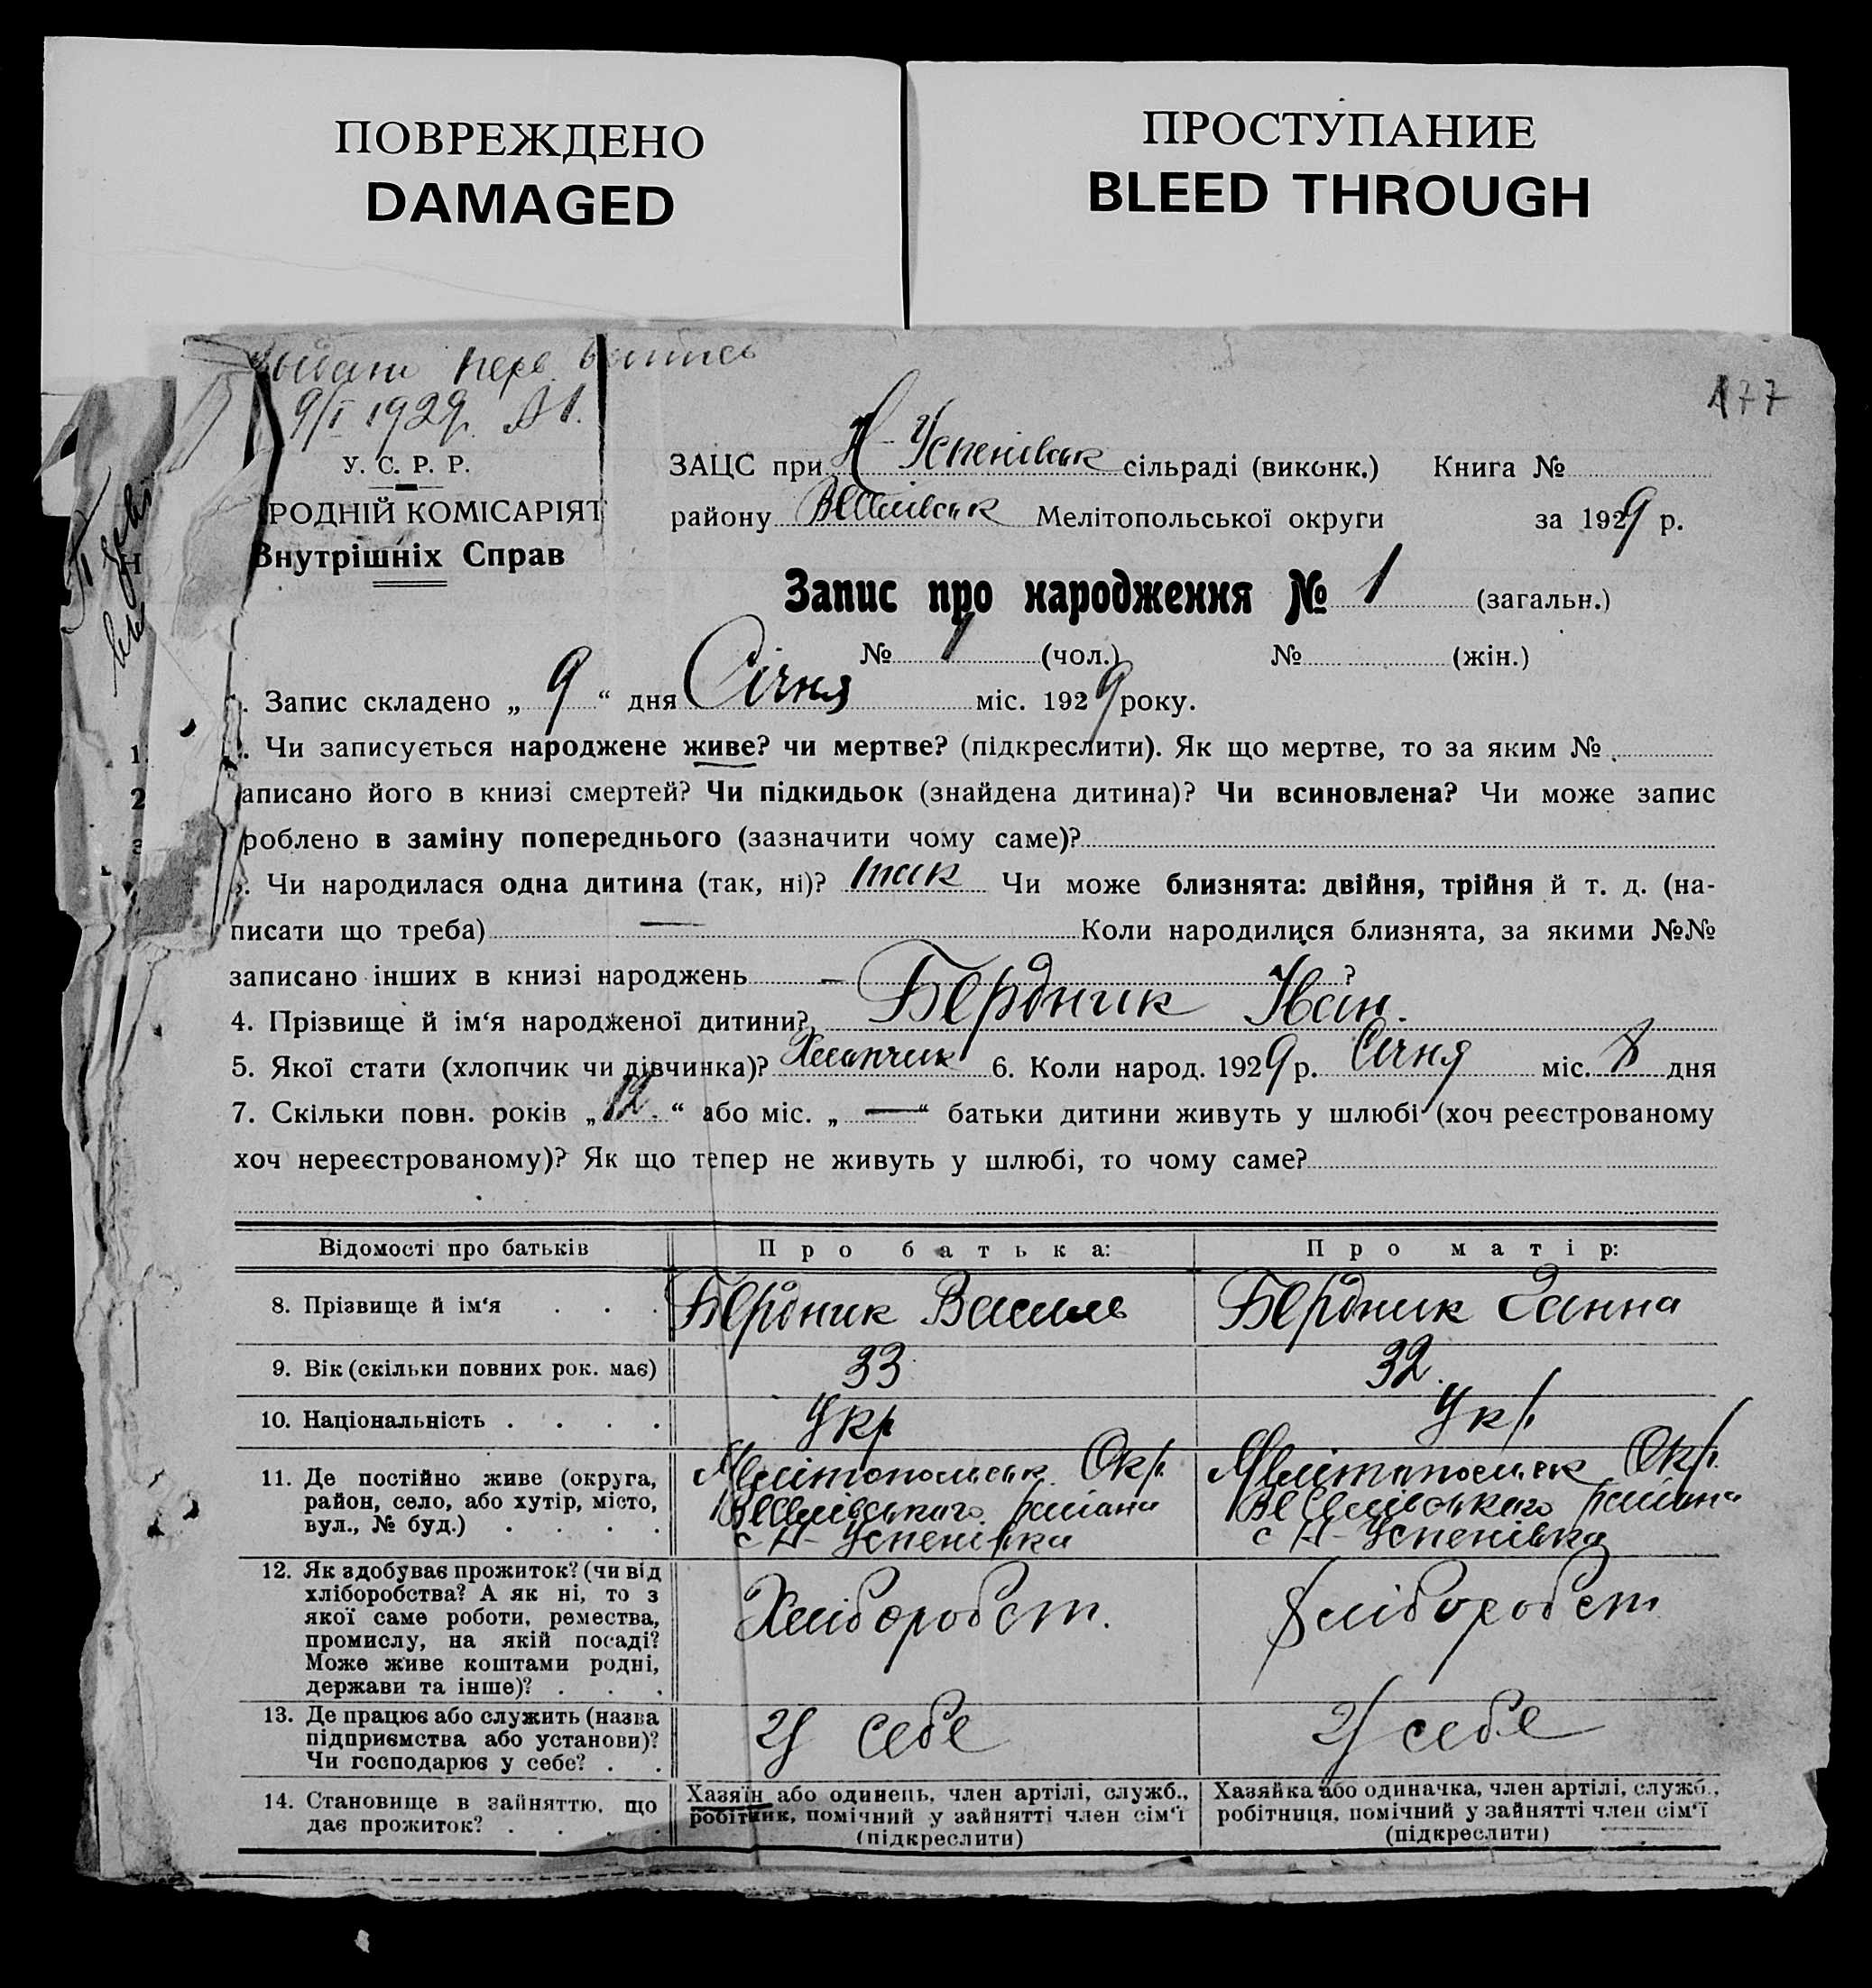 ПОВРЕЖДЕНО
DAMAGED
ПРОСТУПАНИЕ
BLEED THROUGH
177
9/I 1929р. №1.
У. С. Р. Р.
РОДНІЙ КОМІСАРІЯТ
Внутрішніх Справ
ЗАЦС при Н-Успенівськ сільраді (виконк.) Книга №
району Веселівськ Мелітопольської округи за 1929 р.
Запис про народження № 1 (загальн.)
№ 1 (чол.) № (жін.)
. Запис складено „ 9 “ дня Січня міс. 1929 року.
. Чи записується народжене живе? чи мертве? (підкреслити). Як що мертве, то за яким №
аписано його в книзі смертей? Чи підкидьок (знайдена дитина)? Чи всиновлена? Чи може запис
роблено в заміну попереднього (зазначити чому саме)?
. Чи народилася одна дитина (так, ні)? так Чи може близнята: двійня, трійня й т. д. (на-
писати що треба) — Коли народилися близнята, за якими №№
записано інших в книзі народжень — ?
4. Прізвище й ім‘я народженої дитини? Бердник Іван.
5. Якої стати (хлопчик чи дівчинка)? Хлопчик 6. Коли народ. 1929 р. Січня міс. 8 дня
7. Скільки повн. років „ 12. “ або міс. „ — “ батьки дитини живуть у шлюбі (хоч реєстрованому
хоч нереєстрованому)? Як що тепер не живуть у шлюбі, то чому саме?
Відомості про батьків Про батька: Про матір:
8. Прізвище й ім‘я . . . Бердник Василь Бердник Ганна
9. Вік (скільки повних рок. має) 33 32.
10. Національність . . . . Укр Укр.
11. Де постійно живе (округа, Мелітопольськ Окр. Мелітопольськ Окр.
район, село, або хутір, місто, Веселівського района Веселівського района
вул., № буд.) . . . . с Н-Успенівка с Н-Успенівка
12. Як здобуває прожиток? (чи від
хліборобства? А як ні, то з
якої саме роботи, ремества, Хліборобст. Хліборобст
промислу, на якій посаді?
Може живе коштами родні,
держави та інше)? . . .
13. Де працює або служить (назва
підприємства або установи)? У себе У себе
Чи господарює у себе? . .
14. Становище в зайняттю, що Хазяїн або одинець, член артілі, служб., Хазяйка або одиначка, член артілі, служб.,
дає прожиток? . . . . робітник, помічний у зайнятті член сім‘ї робітниця, помічний у зайнятті член сім‘ї
(підкреслити) (підкреслити)